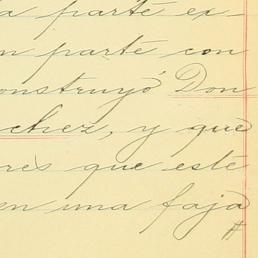 la parte ex-
n parte con
onstruyó Don
chez, y que
res que esté
en una faja
#